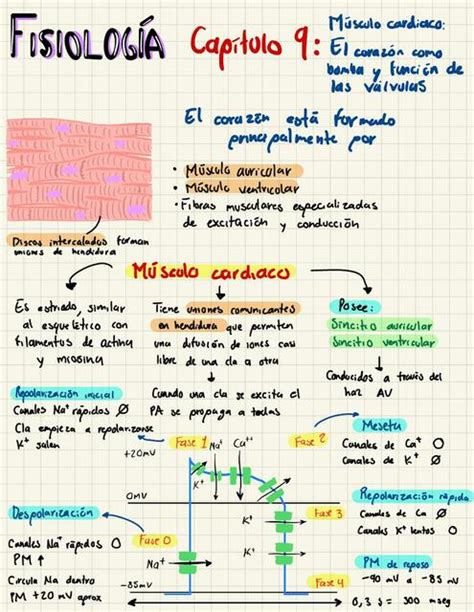 FISIOLOGÍA
Capítulo 9:
Músculo cardiaco:
El corazón como
bomba y función de
las válvulas
El corazón está formado
principalmente por
• Músculo auricular
• Músculo ventricular
• Fibras musculares especializadas
de excitación y conducción
Discos intercalados forman
uniones de hendidura
Músculo cardiaco
Es estriado, similar
al esquelético con
filamentos de actina
y miosina
Tiene uniones comunicantes
en hendidura que permiten
una difusión de iones casi
libre de una cla a otra
Cuando una cla se excita el
PA se propaga a todas
Posee:
Sincitio auricular
Sincitio ventricular
Conducidos a través del
haz AV
Repolarización inicial
Canales Na⁺ rápidos Ø
Cla empieza a repolarizarse
K⁺ salen
Fase 1
Na⁺
Ca⁺⁺
Fase 2
Meseta
Canales de Ca⁺ O
Canales de K⁺ Ø
+20mV
K⁺
0mV
Despolarización
Canales Na⁺ rápidos O
PM ↑
Circula Na dentro
PM +20 mV aprox
Fase 0
Na⁺
-85mV
K⁺
K⁺
Fase 3
Repolarización rápida
Canales de Ca Ø
Canales K⁺ lentos O
Fase 4
PM de reposo
-90 mV a -85 mV
0,3 s = 300 mseg